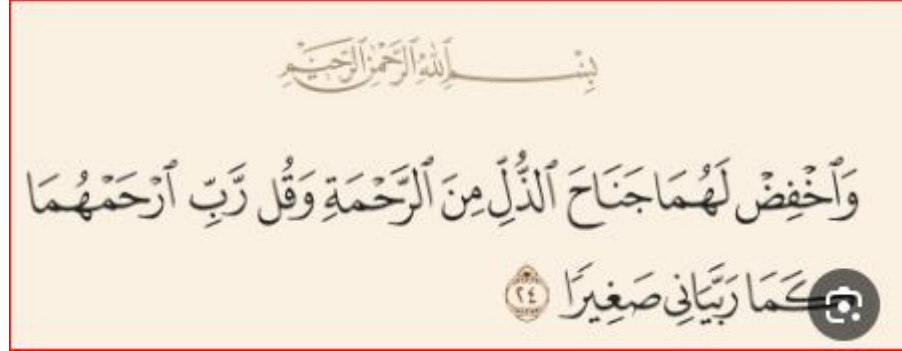 بِسْمِ ٱللَّهِ ٱلرَّحْمَٰنِ ٱلرَّحِيمِ
وَٱخْفِضْ لَهُمَا جَنَاحَ ٱلذُّلِّ مِنَ ٱلرَّحْمَةِ وَقُل رَّبِّ ٱرْحَمْهُمَا
كَمَا رَبَّيَانِى صَغِيرًا ٢٤